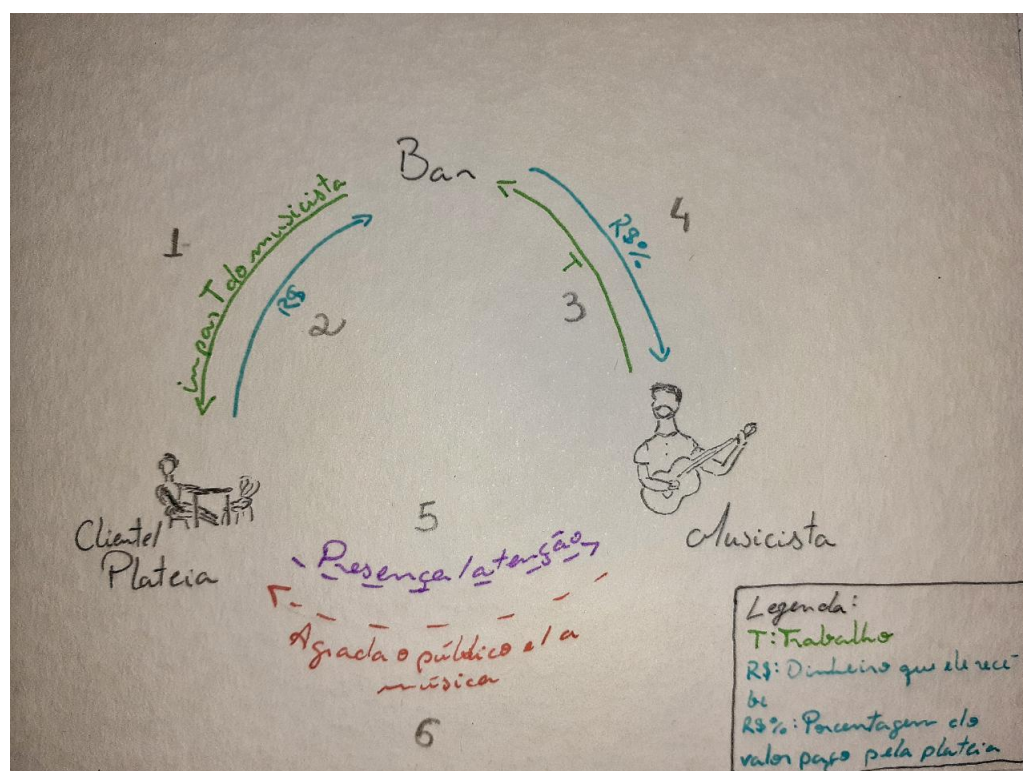 Bar
1
impar T do musicista
R$
2
T
3
R$%
4
Cliente/
Plateia
Musicista
5
Presença/atenção
Agrada o público e/a
música
6
Legenda:
T: Trabalho
R$: Dinheiro que ele rece-
be
R$%: Porcentagem do
valor pago pela plateia